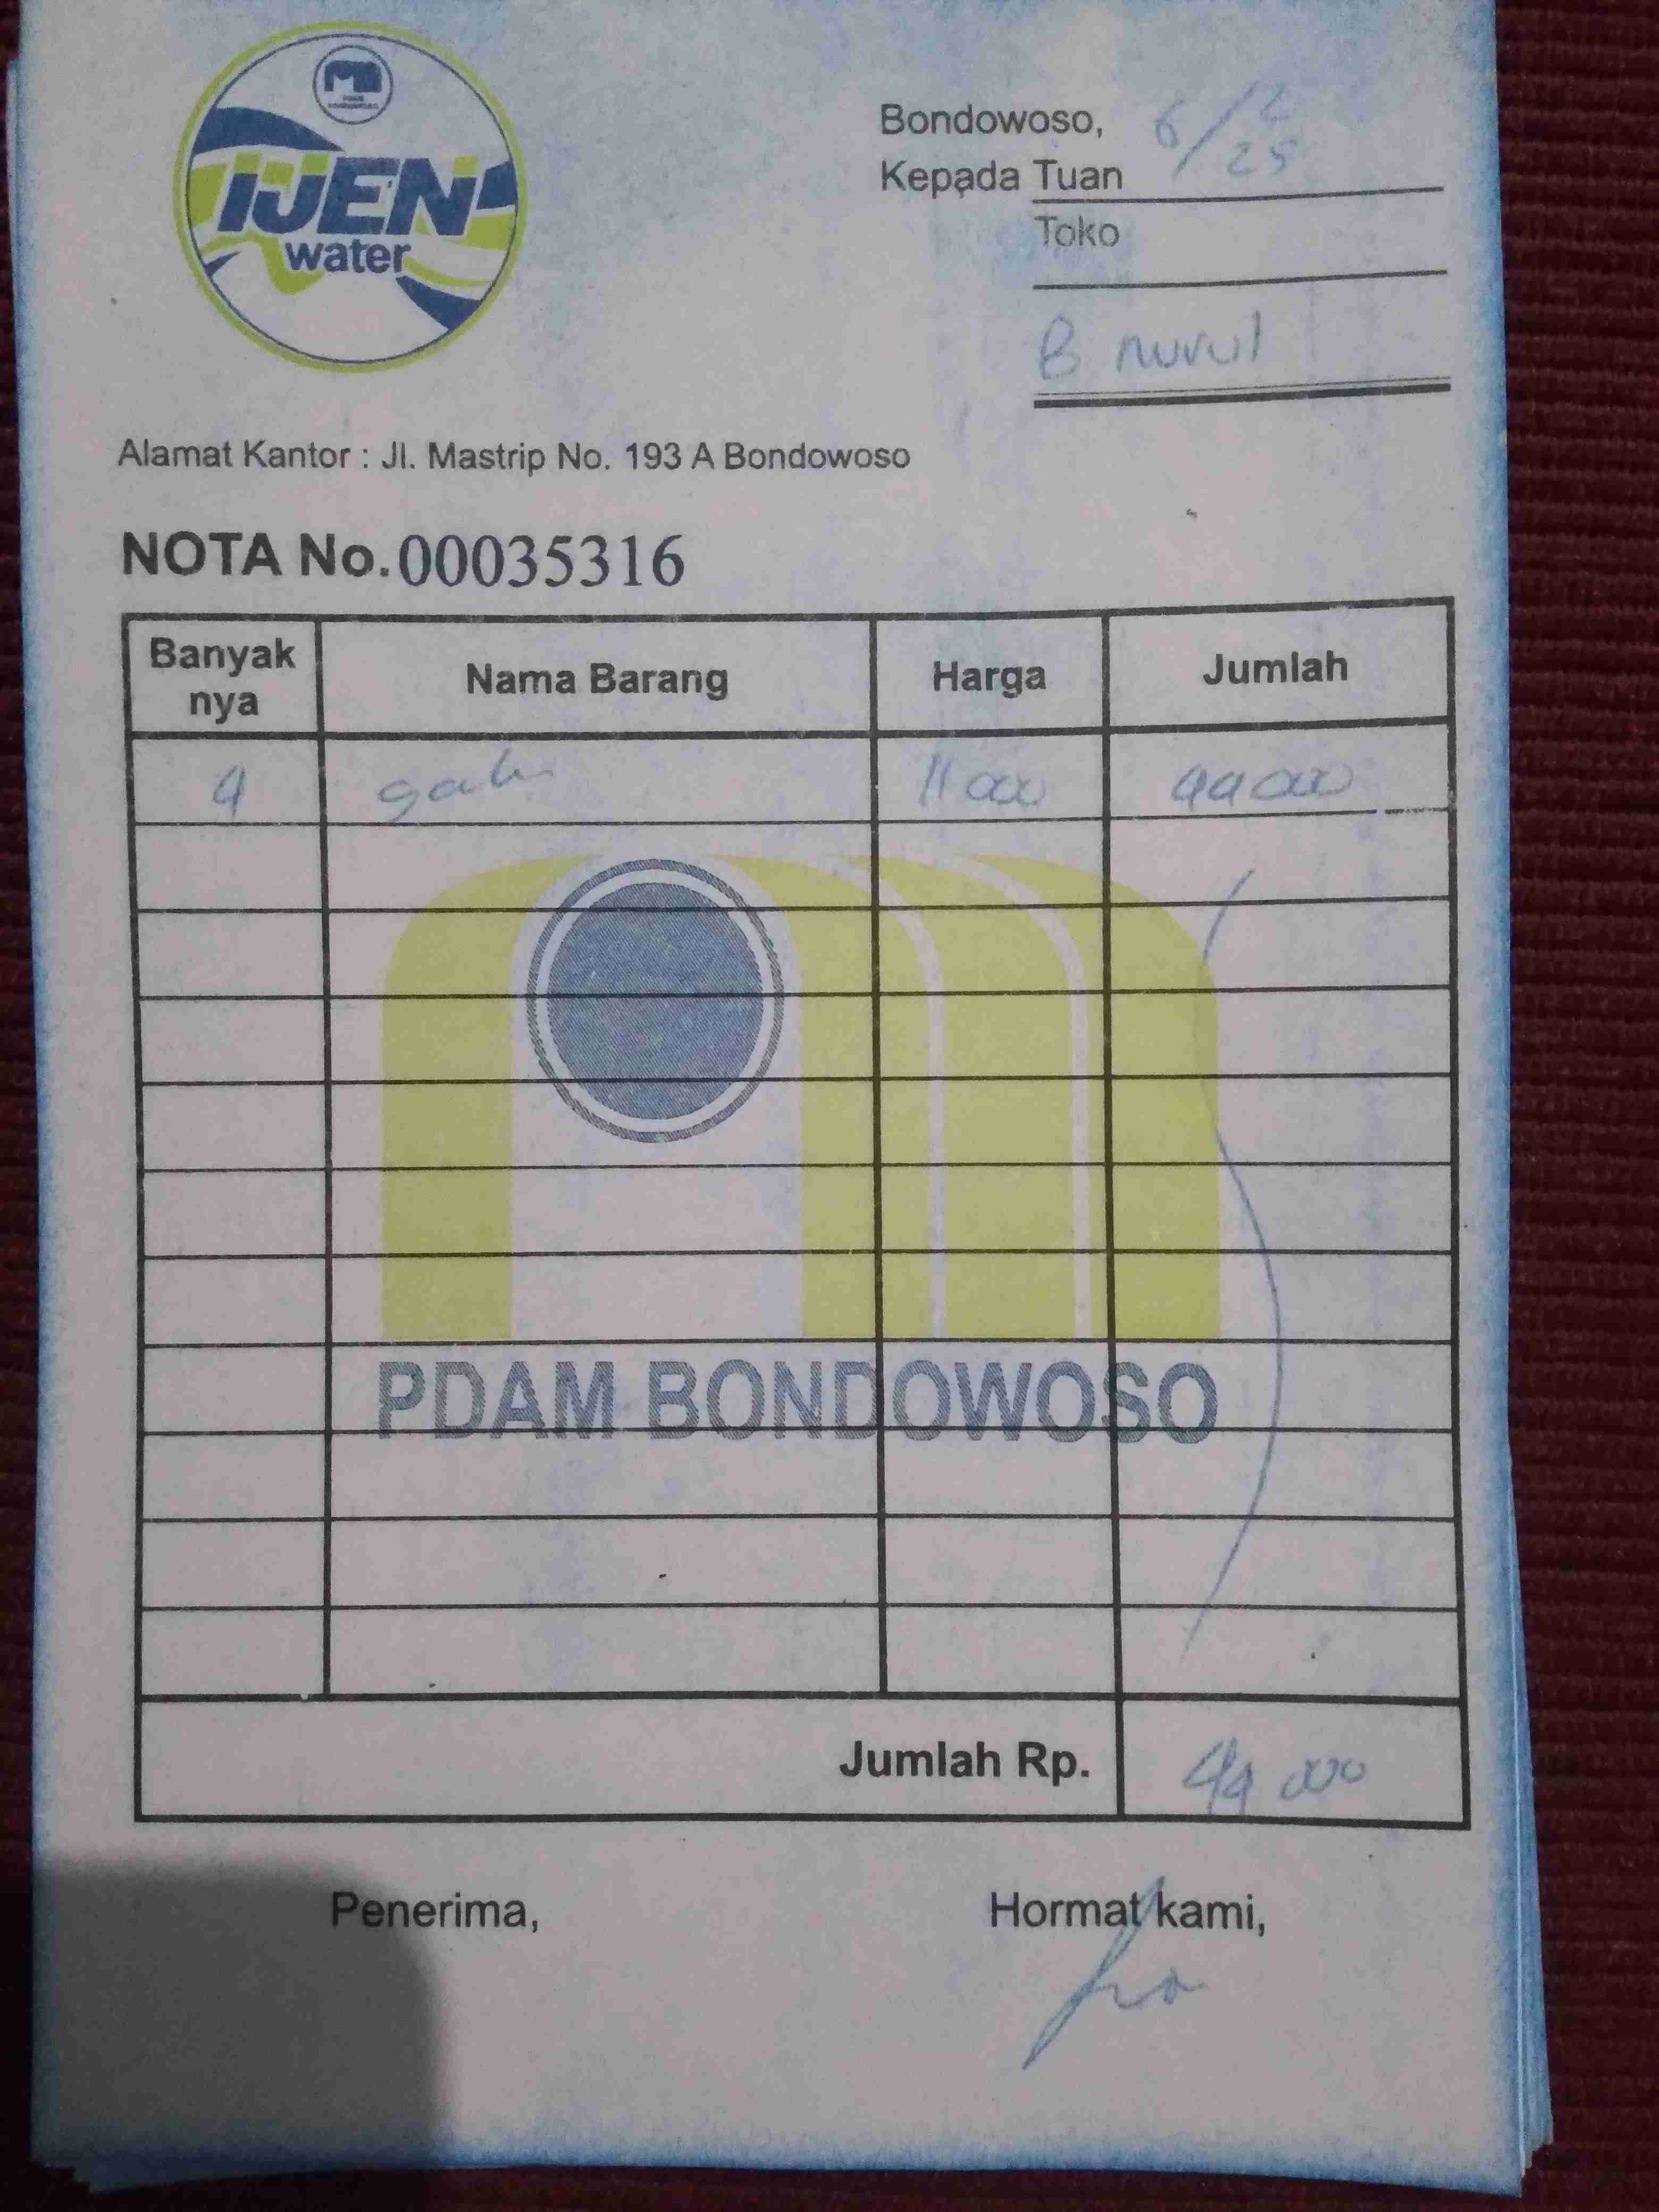 IJEN
water
Bondowoso, 6/2 25
Kepada Tuan
Toko
B nurul
Alamat Kantor : Jl. Mastrip No. 193 A Bondowoso
NOTA No. 00035316
Banyak nya Nama Barang Harga Jumlah
4 11 000 44 000
PDAM BONDOWOSO
Jumlah Rp. 44 000
Penerima, Hormat kami,